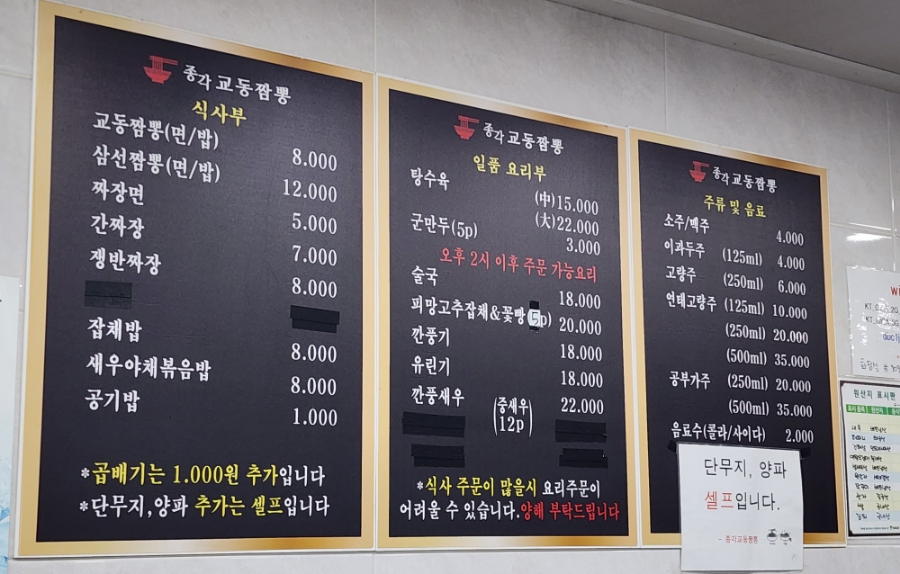 종각 교동짬뽕
식사부
교동짬뽕(면/밥) 8.000
삼선짬뽕(면/밥) 12.000
짜장면 5.000
간짜장 7.000
쟁반짜장 8.000
잡채밥 8.000
새우야채볶음밥 8.000
공기밥 1.000
*곱배기는 1.000원 추가입니다
*단무지,양파 추가는 셀프입니다
종각 교동짬뽕
일품 요리부
탕수육 (中)15.000
(大)22.000
군만두(5p) 3.000
오후 2시 이후 주문 가능요리
술국 18.000
피망고추잡채&꽃빵(5p) 20.000
깐풍기 18.000
유린기 18.000
깐풍새우 (중새우 12p) 22.000
*식사 주문이 많을시 요리주문이
어려울 수 있습니다.양해 부탁드립니다
종각 교동짬뽕
주류 및 음료
소주/맥주 4.000
이과두주 (125ml) 4.000
고량주 (250ml) 6.000
연태고량주 (125ml) 10.000
(250ml) 20.000
(500ml) 35.000
공부가주 (250ml) 20.000
(500ml) 35.000
음료수(콜라/사이다) 2.000
단무지, 양파
셀프입니다.
- 종각교동짬뽕
원산지 표시판